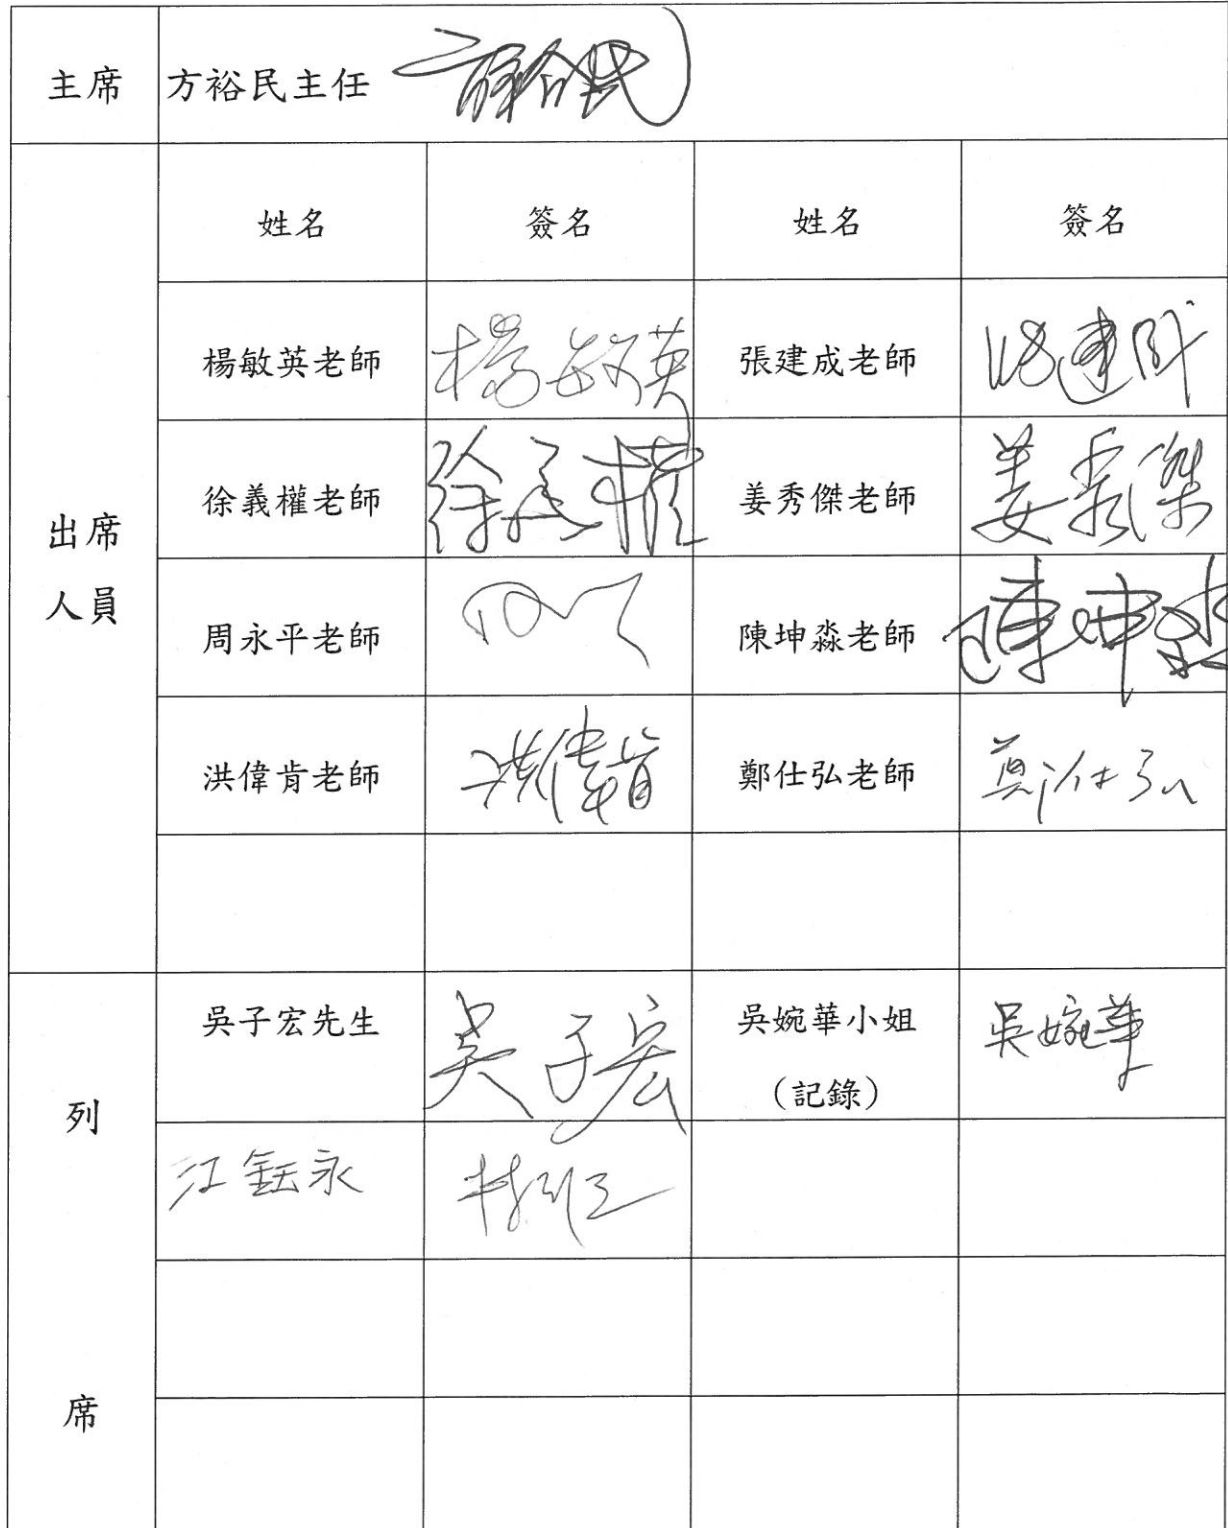 主席 方裕民主任 方裕民
姓名 簽名 姓名 簽名
楊敏英老師 楊敏英 張建成老師 張建成
徐義權老師 徐義權 姜秀傑老師 姜秀傑
周永平老師 陳坤淼老師 陳坤淼
洪偉肯老師 洪偉肯 鄭仕弘老師 鄭仕弘
出席
人員
吳子宏先生 吳子宏 吳婉華小姐 吳婉華
(記錄)
江鈺永
列
席